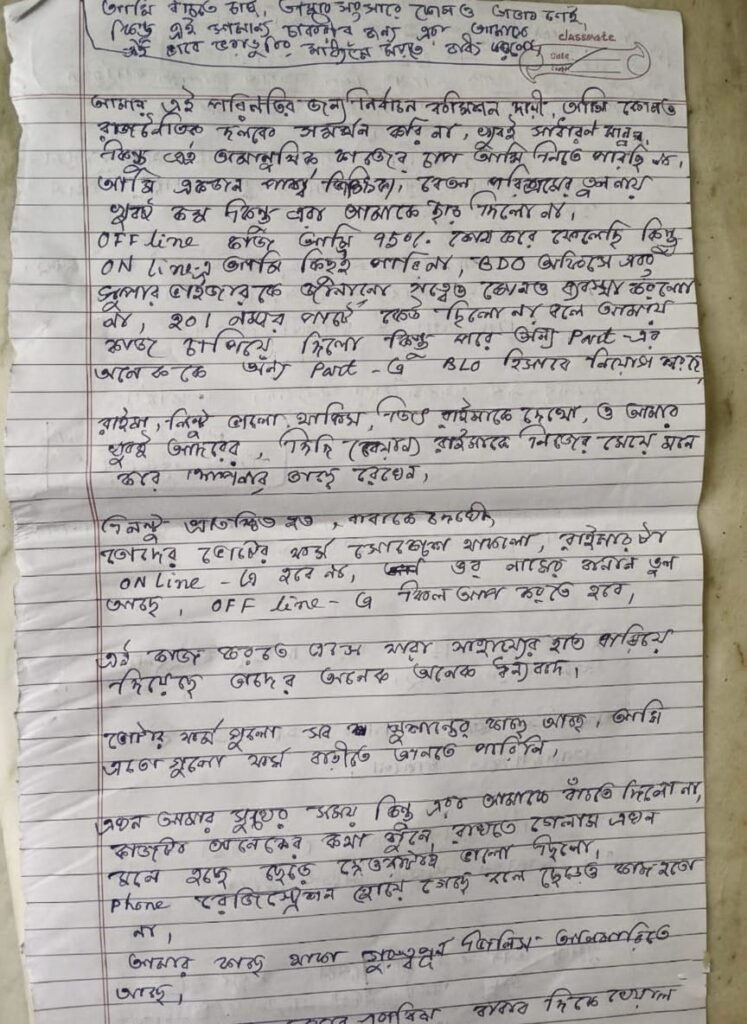 আমি বাঁচতে চাই, আমার সংসারে কোনও অভাব নেই,
কিন্তু এই সামান্য চাকরীর জন্য এরা আমাকে
এই ভাবে ভরাডুবির মাধ্যমে মরতে বাধ্য করলো
classmate
Date
Page
আমার এই পরিনতির জন্য নির্বাচন কমিশন দায়ী, আমি কোনও
রাজনৈতিক দলকে সমর্থন করি না, খুবই সাধারণ মানুষ,
কিন্তু এই অমানুষিক কাজের চাপ আমি নিতে পারছি না,
আমি একজন পার্শ্ব শিক্ষিকা, বেতন পরিশ্রমের তুলনায়
খুবই কম কিন্তু এরা আমাকে ছাড় দিলো না,
OFF line কাজ আমি 95% শেষ করে ফেলেছি কিন্তু
ON line-এ আমি কিছুই পারি না, BDO অফিসে এবং
সুপার ভাইজারকে জানানো সত্ত্বেও কোনও ব্যবস্থা করলো
না, ২০১ নম্বর পার্টে কেউ ছিলো না বলে আমায়
কাজ চাপিয়ে দিলো কিন্তু পরে অন্য Part-এর
অনেককে অন্য Part-এ BLO হিসাবে নিয়োগ করছে,
রাইমা, ভালো থাকিস, রাইমাকে দেখো, ও আমার
খুবই আদরের, দিদি রাইমাকে নিজের মেয়ে মনে
করে আপনার কাছে রেখেন,
বাবাকে দেখো,
তোদের ভোটের ফর্ম থাকলো, রাইমার টা
ON line-এ হবে না, ওর নামের বানান ভুল
আছে, OFF line-এ ফিল আপ করতে হবে,
এই কাজ করতে এসে যারা সাহায্যের হাত বাড়িয়ে
দিয়েছে তাদের অনেক অনেক ধন্যবাদ,
ভোটার ফর্ম গুলো সব সুশান্তের কাছে আছে, আমি
এতো গুলো ফর্ম বাড়ীতে আনতে পারিনি,
এখন আমার সুখের সময় কিন্তু এরা আমাকে বাঁচতে দিলো না,
কাজটা অনেকের কথা শুনে রাখতে গেলাম এখন
মনে হচ্ছে ছেড়ে দেওয়াটাই ভালো ছিলো,
Phone রেজিস্ট্রেশন হোয়ে গেছে বলে ছেড়েও কাজ হতো
না,
আমার কাছে থাকা গুরুত্বপূর্ণ জিনিস আলমারিতে
আছে,
বাবার দিকে খেয়াল